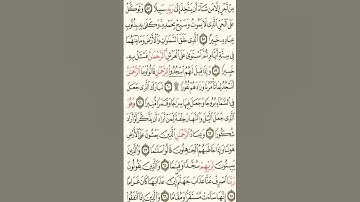 مِنْ أَجْرٍ إِلَّا مَن شَآءَ أَن يَتَّخِذَ إِلَىٰ رَبِّهِۦ سَبِيلًا ٥٧ وَتَوَكَّلْ
عَلَى ٱلْحَىِّ ٱلَّذِى لَا يَمُوتُ وَسَبِّحْ بِحَمْدِهِۦ وَكَفَىٰ بِهِۦ بِذُنُوبِ
عِبَادِهِۦ خَبِيرًا ٥٨ ٱلَّذِى خَلَقَ ٱلسَّمَٰوَٰتِ وَٱلْأَرْضَ وَمَا بَيْنَهُمَا
فِى سِتَّةِ أَيَّامٍ ثُمَّ ٱسْتَوَىٰ عَلَى ٱلْعَرْشِ ٱلرَّحْمَٰنُ فَسْـَٔلْ بِهِۦ
خَبِيرًا ٥٩ وَإِذَا قِيلَ لَهُمُ ٱسْجُدُوا۟ لِلرَّحْمَٰنِ قَالُوا۟ وَمَا ٱلرَّحْمَٰنُ
أَنَسْجُدُ لِمَا تَأْمُرُنَا وَزَادَهُمْ نُفُورًا ۩ ٦٠ تَبَارَكَ ٱلَّذِى جَعَلَ
فِى ٱلسَّمَآءِ بُرُوجًا وَجَعَلَ فِيهَا سِرَٰجًا وَقَمَرًا مُّنِيرًا ٦١ وَهُوَ
ٱلَّذِى جَعَلَ ٱلَّيْلَ وَٱلنَّهَارَ خِلْفَةً لِّمَنْ أَرَادَ أَن يَذَّكَّرَ أَوْ أَرَادَ
شُكُورًا ٦٢ وَعِبَادُ ٱلرَّحْمَٰنِ ٱلَّذِينَ يَمْشُونَ عَلَى ٱلْأَرْضِ
هَوْنًا وَإِذَا خَاطَبَهُمُ ٱلْجَٰهِلُونَ قَالُوا۟ سَلَٰمًا ٦٣ وَٱلَّذِينَ
يَبِيتُونَ لِرَبِّهِمْ سُجَّدًا وَقِيَٰمًا ٦٤ وَٱلَّذِينَ يَقُولُونَ
رَبَّنَا ٱصْرِفْ عَنَّا عَذَابَ جَهَنَّمَ إِنَّ عَذَابَهَا كَانَ غَرَامًا
٦٥ إِنَّهَا سَآءَتْ مُسْتَقَرًّا وَمُقَامًا ٦٦ وَٱلَّذِينَ إِذَآ أَنفَقُوا۟